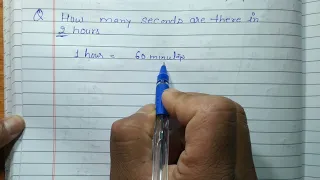 Q How many seconds are there in
2 hours
1 hour = 60 minutes